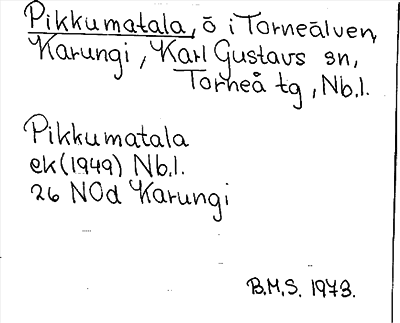 Pikkumatala, ö i Torneälven,
Karungi, Karl Gustavs sn,
Torneå tg, Nb.l.
Pikkumatala
ek (1949) Nb.l.
26 NOd Karungi
B.M.S. 1973.